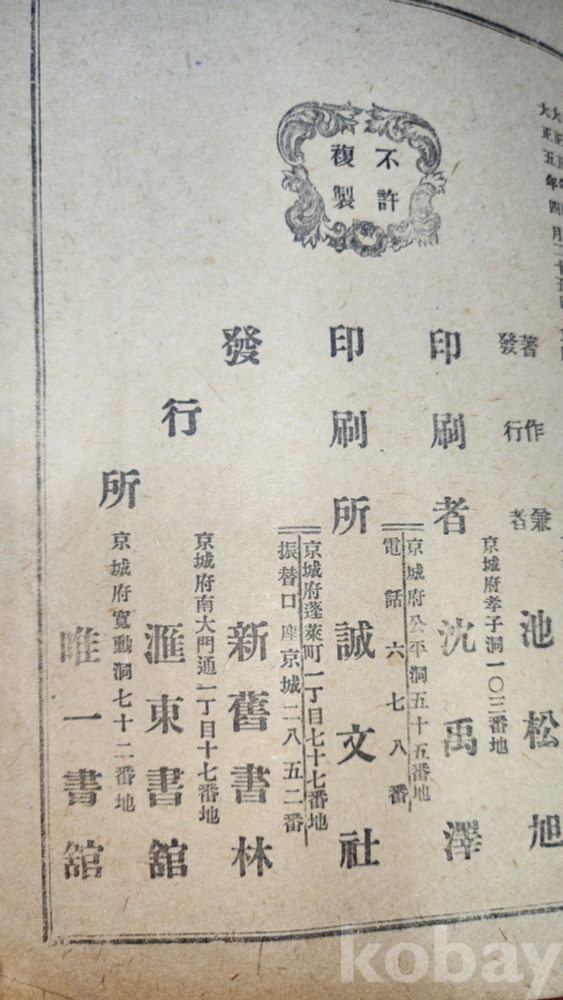 大正五年四月二十五日
不許
複製
著作兼
發行者
池松旭
京城府孝子洞一〇三番地
印刷者
沈禹澤
京城府公平洞五十五番地
電話六七八番
印刷所
誠文社
京城府蓬萊町一丁目七十七番地
振替口座京城二八五二番
發行所
新舊書林
京城府南大門通一丁目十七番地
滙東書舘
京城府寬勳洞七十二番地
唯一書舘
kobay